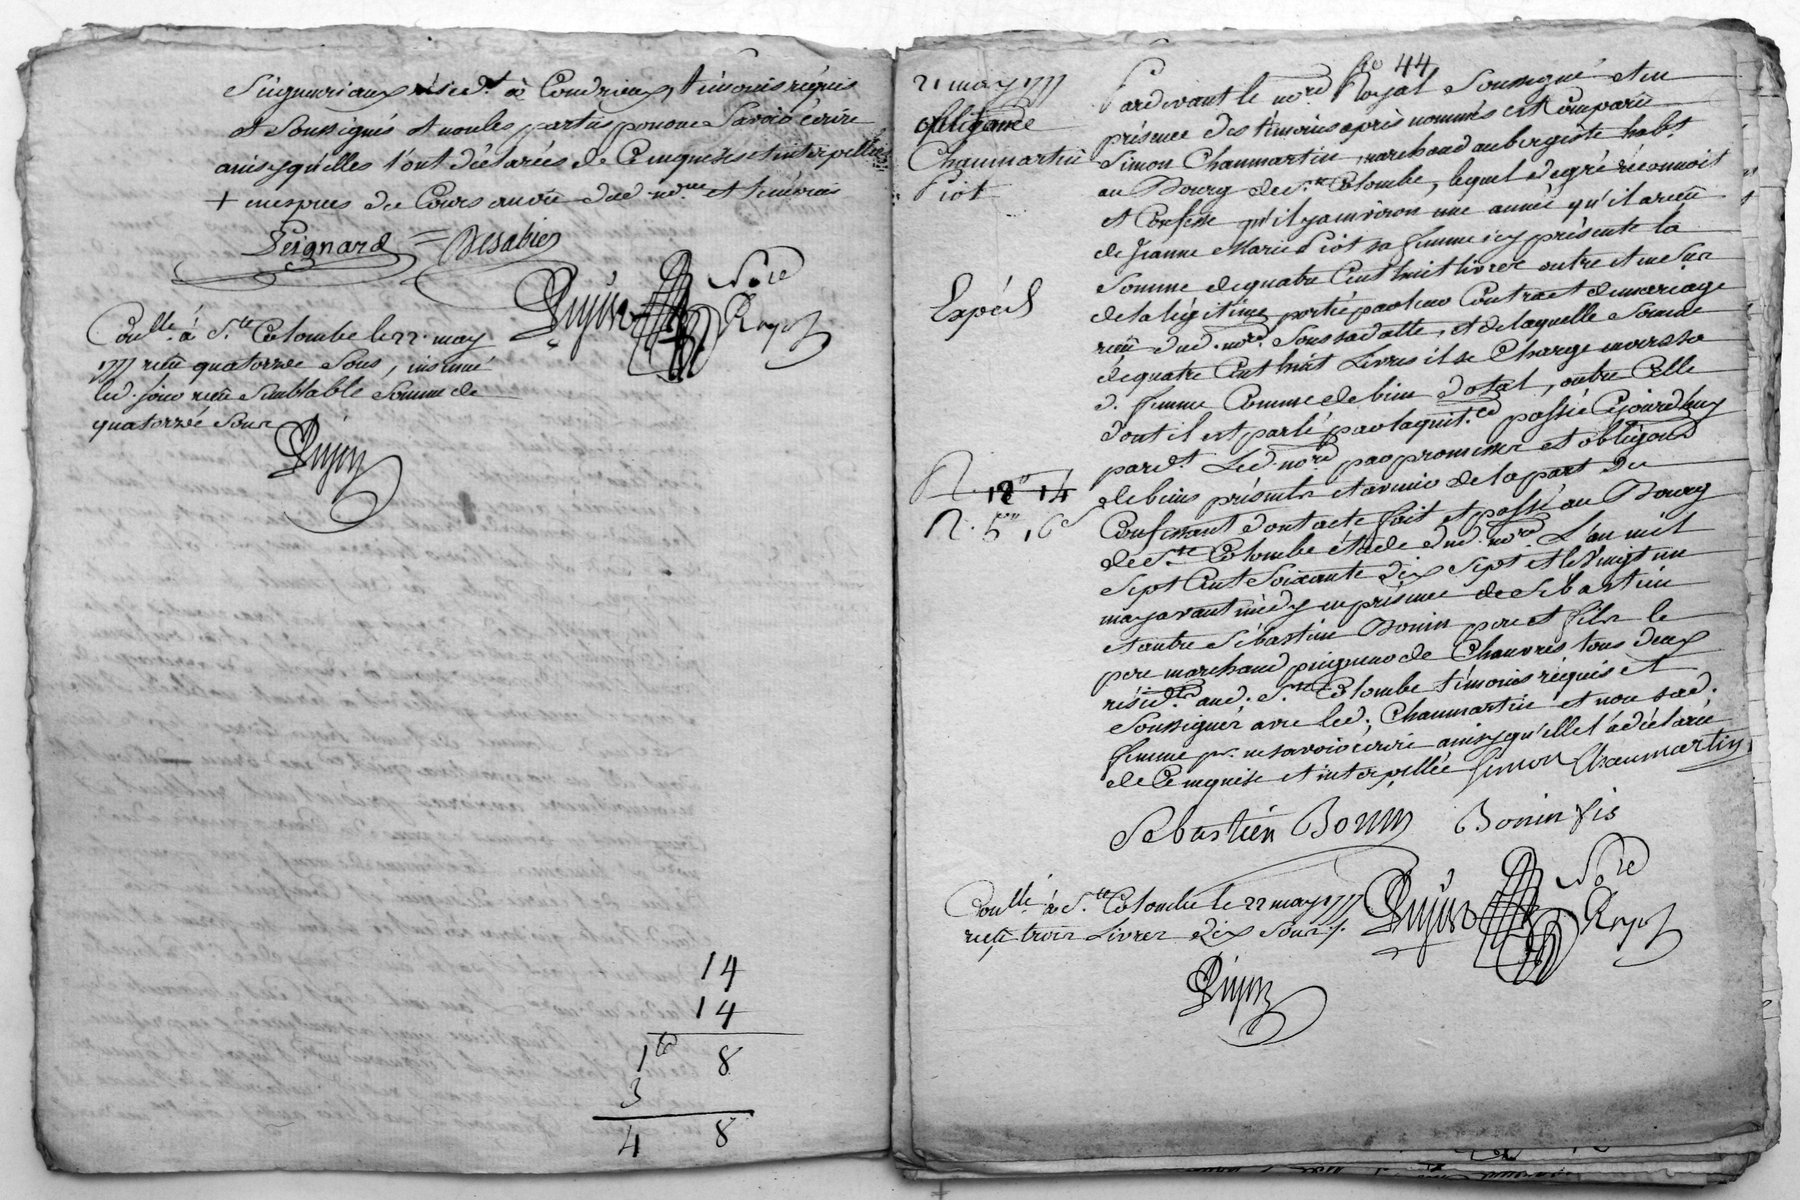 Seigneuriaux résid.t à Condrieux, témoins réquis
et soussignés et non les parties pour ne savoir écrire
ainsy qu'elles l'ont déclarées de ce enquises et interpellées
+ en espèces de cours au vû dud no.re et témoins
Peignard = Desabies
Dujon No.re Royal
Con.llé à S.te Colombe le 22 may
1777 reçu quatorze sous, insinué
led. jour reçu semblable somme de
quatorze sous
Dujon
14
14
1 8
3
4 8
44
21 may 1777
obligance
Chaumartin
Piot
Expéd
R. 14
R. 5 16
Pardevant le no.re Royal soussigné et en
présence des témoins après nommés est comparu
Simon Chaumartin marchand aubergiste hab.t
au Bourg de S.te Colombe, lequel de gré réconnoit
et confesse qu'il y a environ une année qu'il a reçu
de Jeanne Marie Piot sa femme icy présente la
somme de quatre cent huit livres outre et en sus
de la légitime portée par leur contract de mariage
reçu dud. no.re sous sa datte, et de laquelle somme
de quatre cent huit livres il se charge envers sa
d. femme comme de bien dotal, outre celle
dont il est parlé par la quit.ce passée cejourd'huy
pard.t led. no.re par promesse et obligaon
de biens présents et avenir de la part du
confessant dont acte fait et passé au Bourg
de S.te Colombe étude dud. no.re L'an mil
sept cent soixante dix sept et le vingt un
may avant midy en présence de Sébastien
et autre Sébastien Bonin père et fils le
père marchand peigneur de chanvres tous deux
résid.ts aud. S.te Colombe témoins réquis et
soussignés avec led. Chaumartin et non sad.
femme p.r ne savoir écrire ainsy qu'elle l'a déclaré
de ce enquise et interpellée Simon Chaumartin
Sebastien Bonin Bonin fis
Dujon No.re Royal
Con.llé à S.te Colombe le 22 may 1777
reçu trois livres dix sous
Dujon